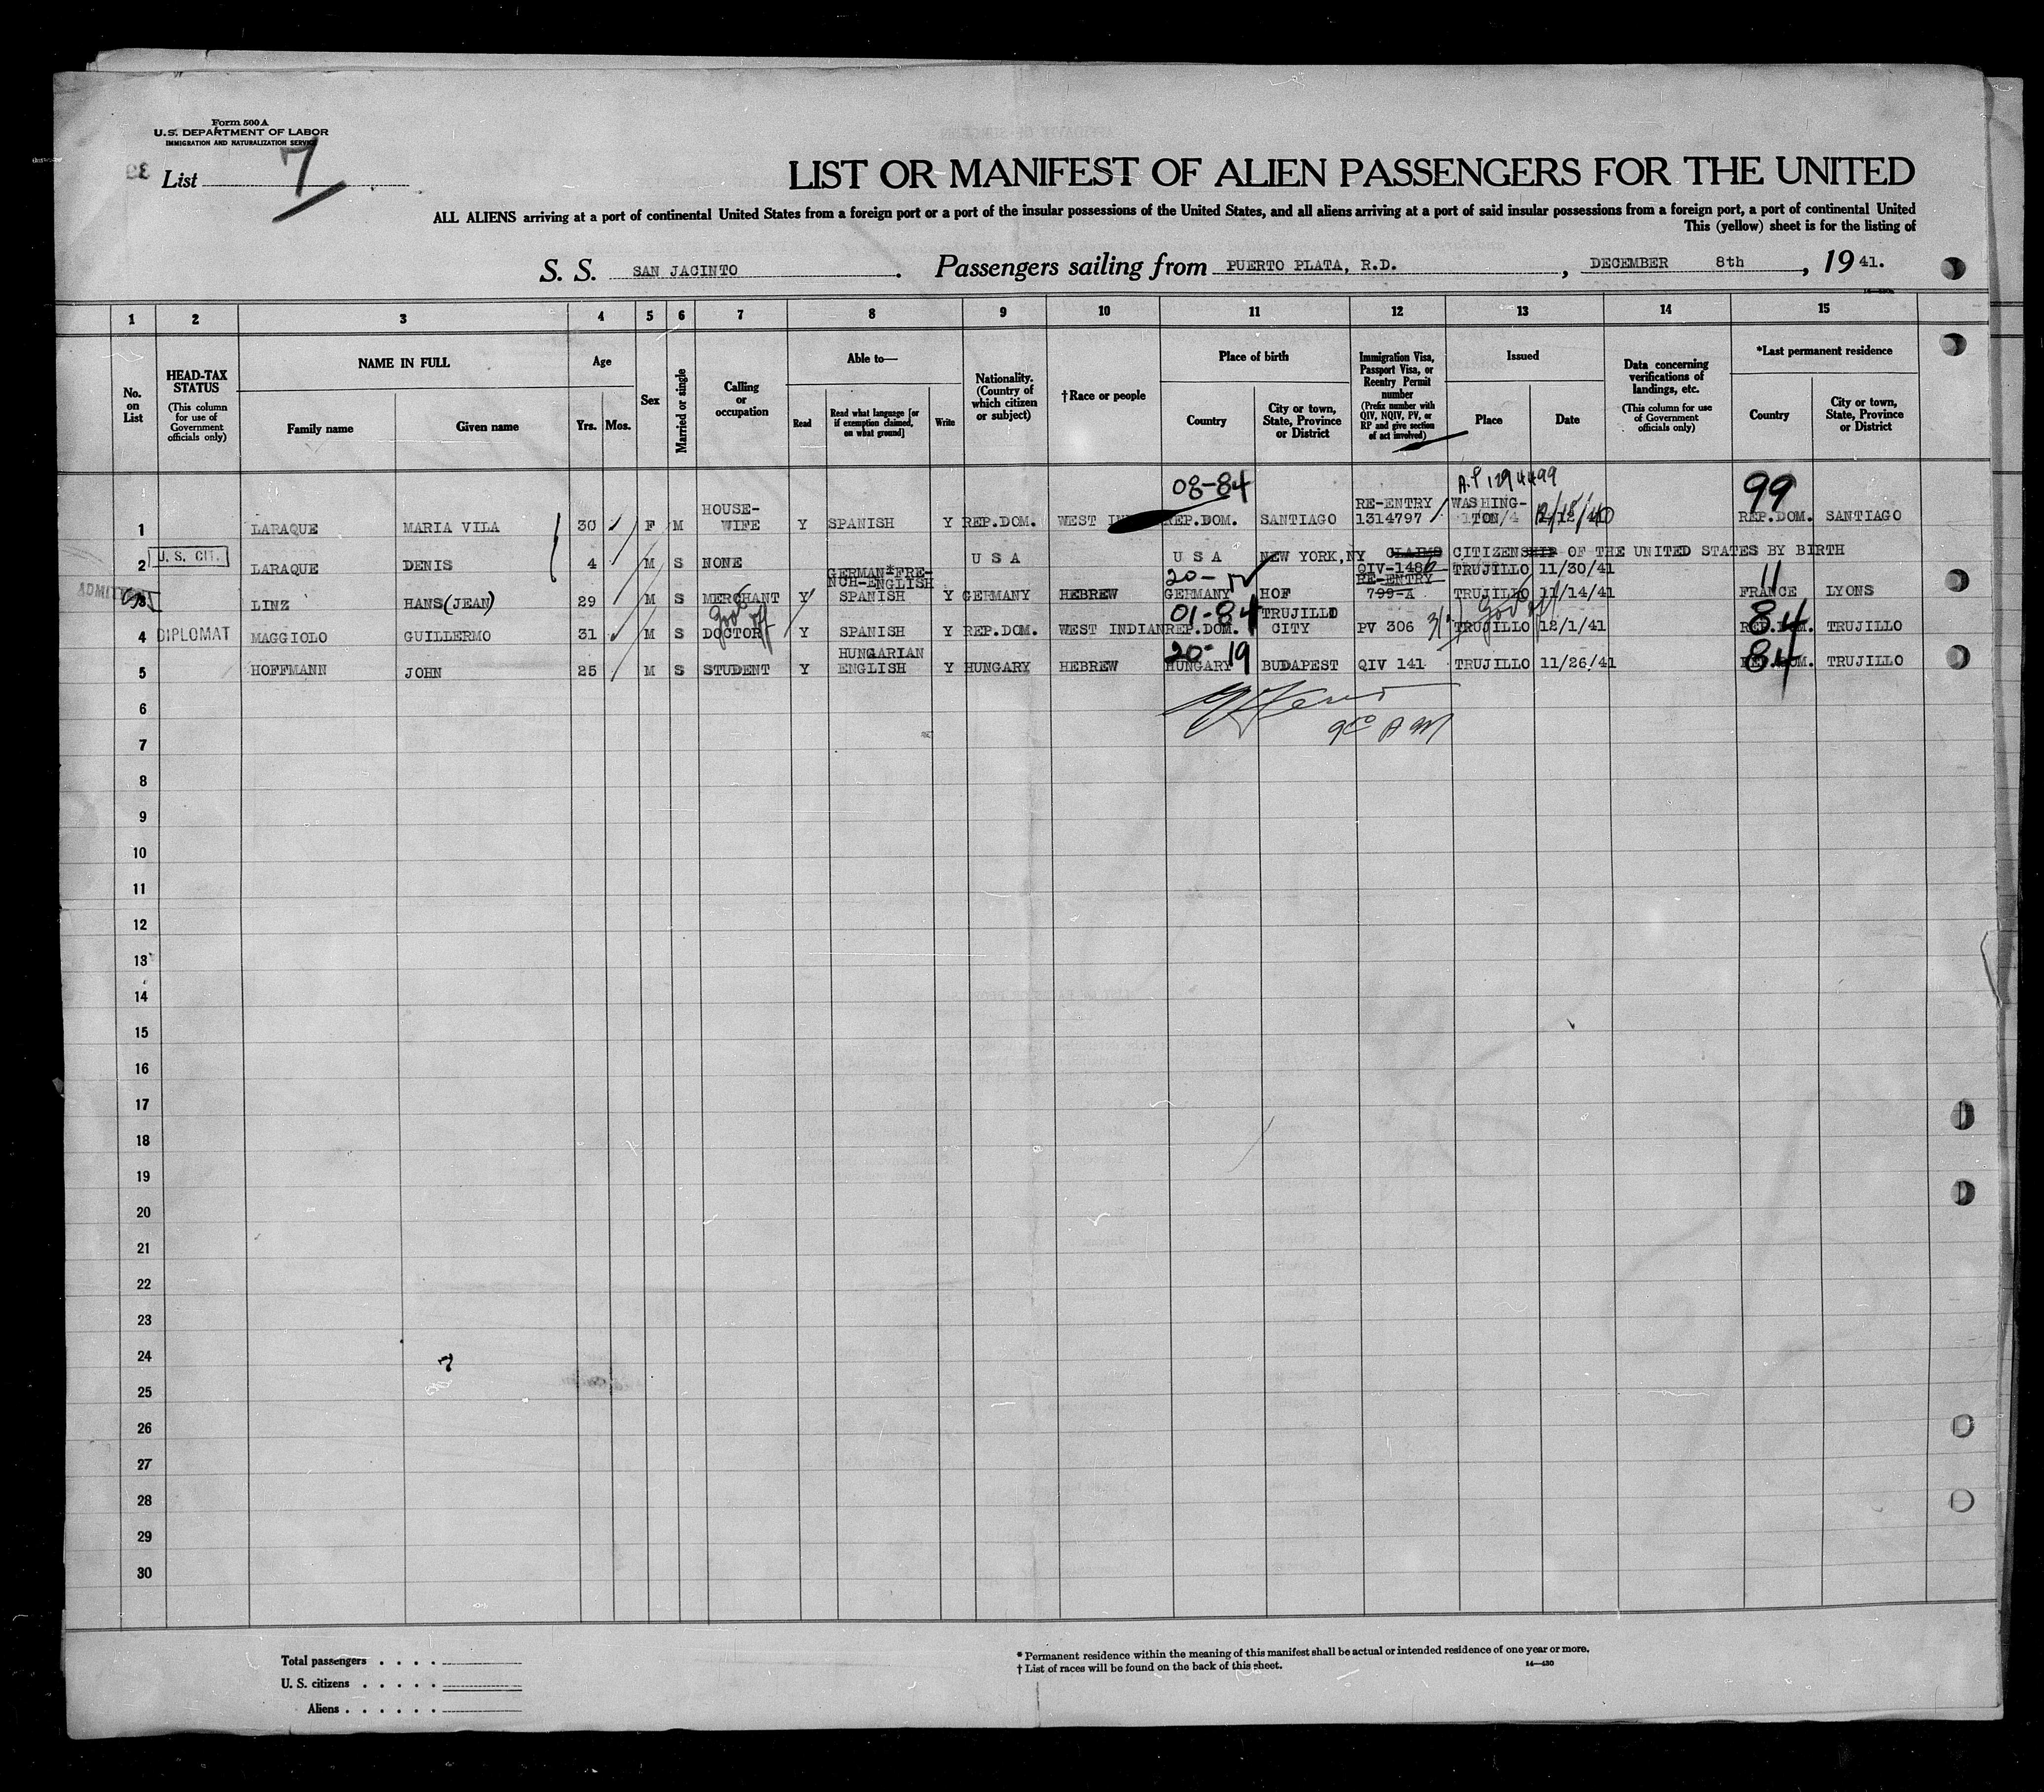 Form 500 A
U.S. DEPARTMENT OF LABOR
IMMIGRATION AND NATURALIZATION SERVICE
List 7
LIST OR MANIFEST OF ALIEN PASSENGERS FOR THE UNITED
ALL ALIENS arriving at a port of continental United States from a foreign port or a port of the insular possessions of the United States, and all aliens arriving at a port of said insular possessions from a foreign port, a port of continental United
This (yellow) sheet is for the listing of
S. S. SAN JACINTO. Passengers sailing from PUERTO PLATA, R.D., DECEMBER 8th, 19 41.
1 2 3 4 5 6 7 8 9 10 11 12 13 14 15
No. on List
HEAD-TAX STATUS (This column for use of Government officials only)
NAME IN FULL
Family name Given name
Age
Yrs. Mos.
Sex
Married or single
Calling or occupation
Able to—
Read Read what language [or if exemption claimed, on what ground] Write
Nationality. (Country of which citizen or subject)
†Race or people
Place of birth
Country City or town, State, Province or District
Immigration Visa, Passport Visa, or Reentry Permit number (Prefix number with QIV, NQIV, PV, or RP and give section of act involved)
Issued
Place Date
Data concerning verifications of landings, etc. (This column for use of Government officials only)
*Last permanent residence
Country City or town, State, Province or District
08-84 99
1 LARAQUE MARIA VILA 30 F M HOUSE-WIFE Y SPANISH Y REP.DOM. WEST REP.DOM. SANTIAGO RE-ENTRY 1314797 WASHING-TON REP.DOM. SANTIAGO
2 U.S. CIT. LARAQUE DENIS 4 M S NONE U S A U S A NEW YORK, NY CLAIMS CITIZENSHIP OF THE UNITED STATES BY BIRTH
QIV-1486 TRUJILLO 11/30/41
20- 11
3 LINZ HANS (JEAN) 29 M S MERCHANT Y GERMAN*FRE-NCH-ENGLISH SPANISH Y GERMANY HEBREW GERMANY HOF RE-ENTRY 799-A TRUJILLO 11/14/41 FRANCE LYONS
01-84 84
4 DIPLOMAT MAGGIOLO GUILLERMO 31 M S DOCTOR Y SPANISH Y REP.DOM. WEST INDIAN REP.DOM. TRUJILLO CITY PV 306 TRUJILLO 12/1/41 REP.DOM. TRUJILLO
20-19 84
5 HOFFMANN JOHN 25 M S STUDENT Y HUNGARIAN ENGLISH Y HUNGARY HEBREW HUNGARY BUDAPEST QIV 141 TRUJILLO 11/26/41 REP.DOM. TRUJILLO
6
7
8
9
10
11
12
13
14
15
16
17
18
19
20
21
22
23
24
25
26
27
28
29
30
Total passengers . . . .
U. S. citizens . . . . .
Aliens . . . . . .
* Permanent residence within the meaning of this manifest shall be actual or intended residence of one year or more.
† List of races will be found on the back of this sheet.
14—430